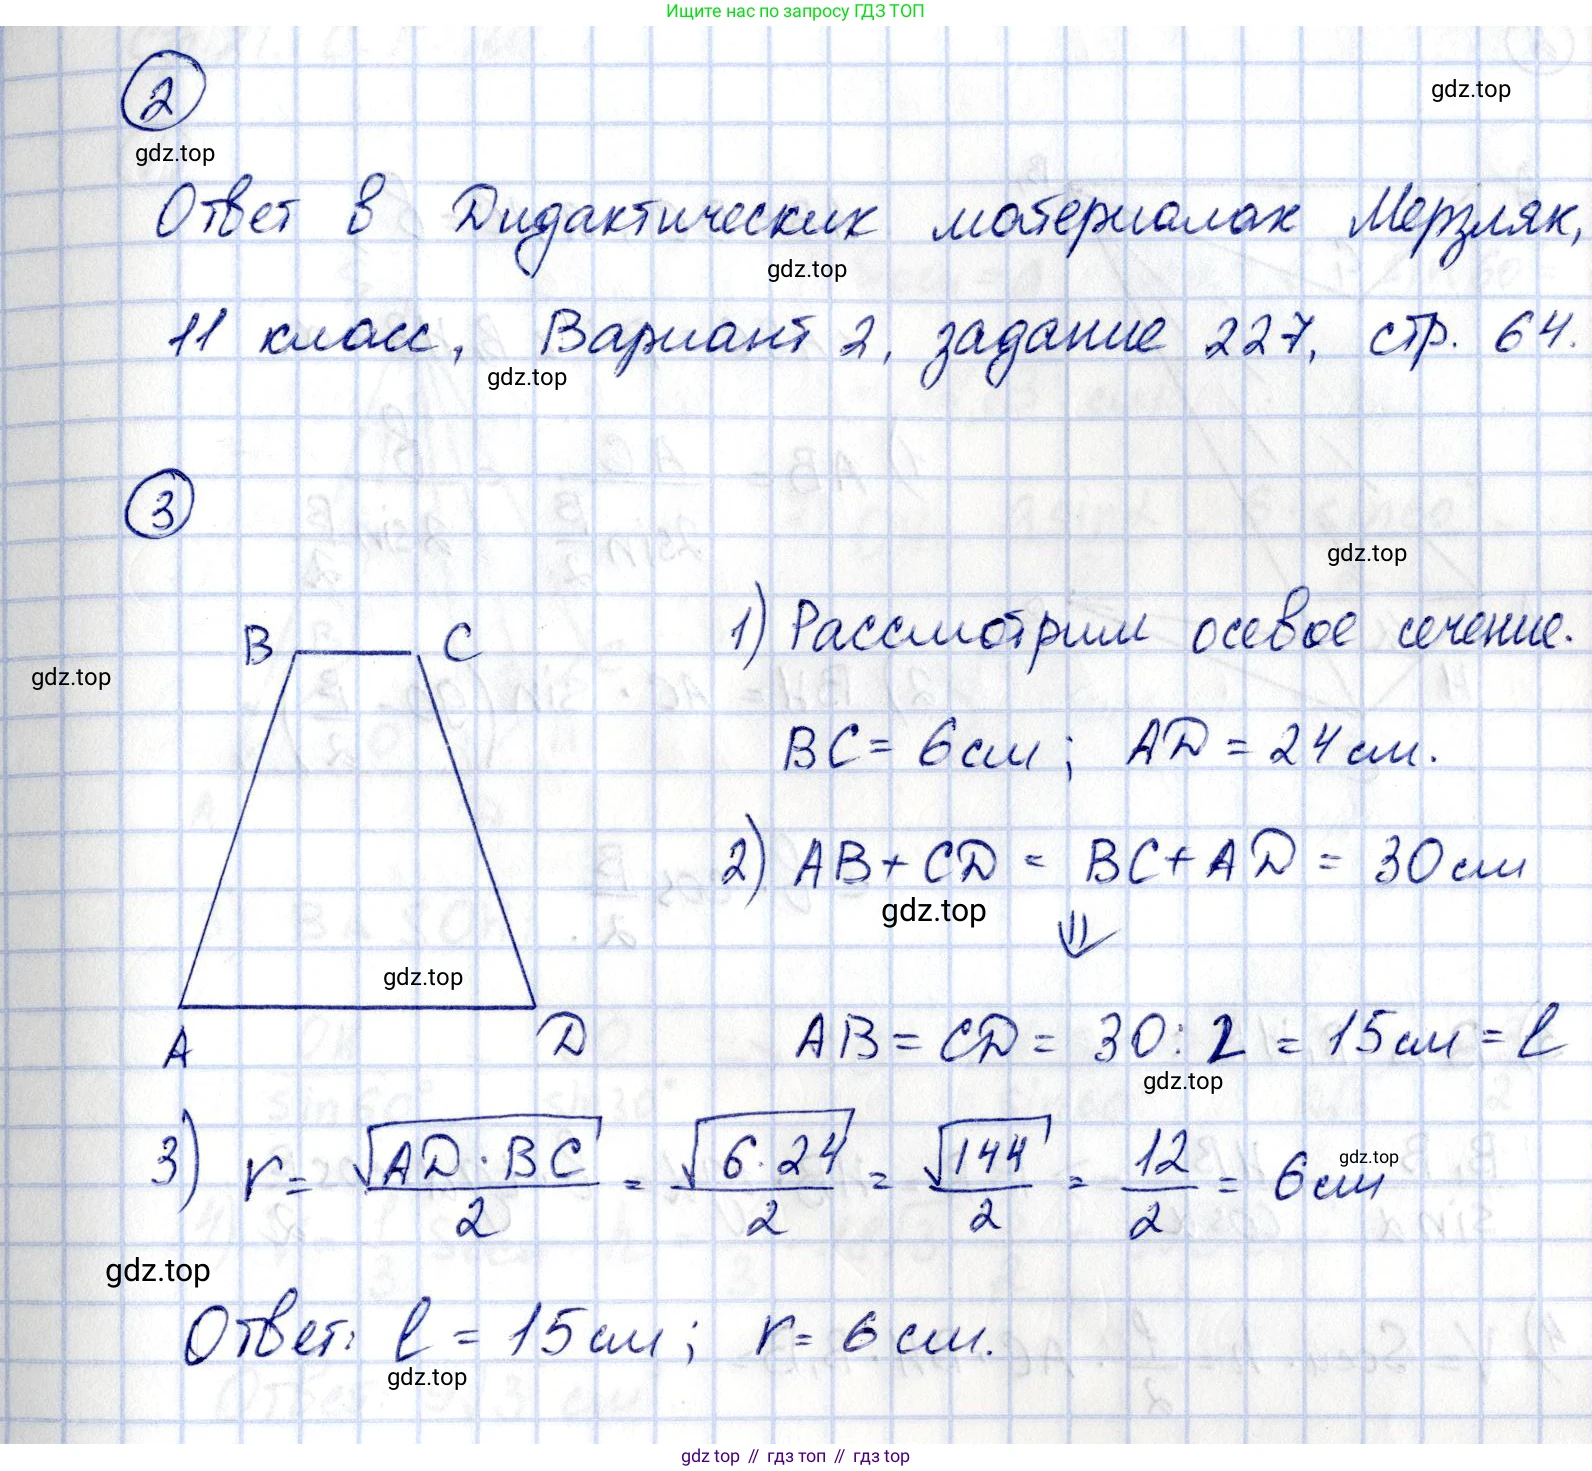 Ищите нас по запросу ГДЗ ТОП
2
gdz.top
gdz.top
Ответ в Дидактических материалах Мерзляк,
gdz.top
11 класс, Вариант 2, задание 227, стр. 64.
gdz.top
3
gdz.top
B C
1) Рассмотрим осевое сечение.
gdz.top
BC = 6 см; AD = 24 см.
2) AB + CD = BC + AD = 30 см
gdz.top
⇓
gdz.top
A D
AB = CD = 30 : 2 = 15 см = l
gdz.top
3) r = √(AD · BC)/2 = √(6 · 24)/2 = √144/2 = 12/2 = 6 см
gdz.top
gdz.top
Ответ: l = 15 см; r = 6 см.
gdz.top
gdz top // гдз топ // гдз top